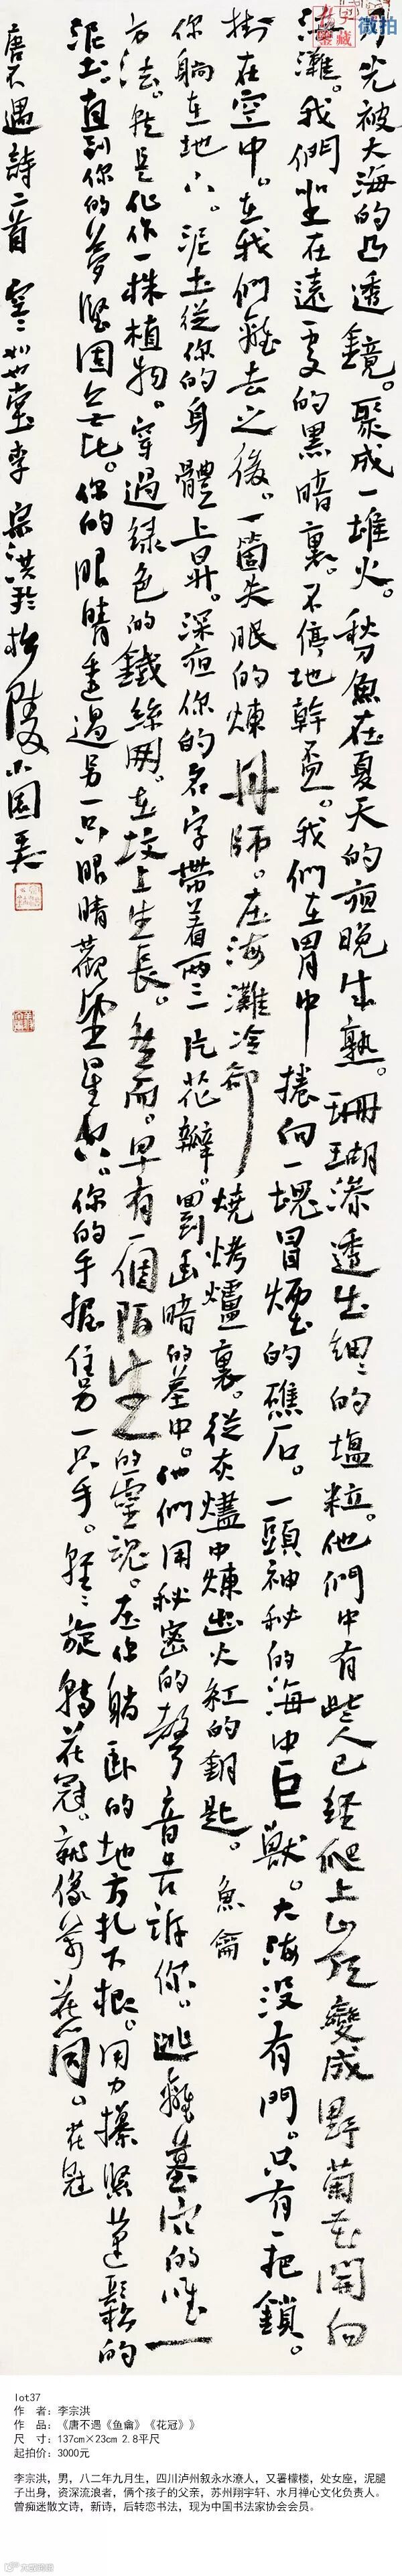 月光被大海的凸透鏡。聚成一堆火。秋刀魚在夏天的夜晚生熟。珊瑚滲透出細〻的塩粒。他們中有些人已經爬上山頂變成野葡萄開向
海灘。我們坐在遠處的黑暗裏。不停地幹盃。我們在胃中捲向一塊冒煙的礁石。一頭神秘的海中巨獸。大海沒有門。只有一把鎖。
掛在空中。在我們離去之後。一箇失眠的煉丹師。在海灘冷卻燒烤爐裏。從灰燼中煉出火紅的鑰匙。 魚龠
你躺在地下。泥土從你的身體上昇。深夜你的名字帶着兩三片花瓣。回到幽暗的墓中。他們用秘密的聲音告訴你。逃離墓穴的唯一
方法。就是化作一株植物。穿過綠色的鐵絲网。在墳上生長。然而。早有一個陌生的靈魂。在你躺臥的地方扎下根。用力攥緊蓬鬆的
泥土。直到你的夢堅固無比。你的眼睛透過另一只眼睛觀望星空。你的手握住另一只手。輕〻旋轉花冠。就像萬花筒。 花冠
唐不遇詩二首 李宗洪於 小園
微拍
鑒藏
lot37
作 者：李宗洪
作 品：《唐不遇《鱼龠》《花冠》》
尺 寸：137cm×23cm 2.8平尺
起拍价：3000元
李宗洪，男，八二年九月生，四川泸州叙永水潦人，又署檬楼，处女座，泥腿
子出身，资深流浪者，俩个孩子的父亲，苏州翔宇轩、水月禅心文化负责人。
曾痴迷散文诗，新诗，后转恋书法，现为中国书法家协会会员。